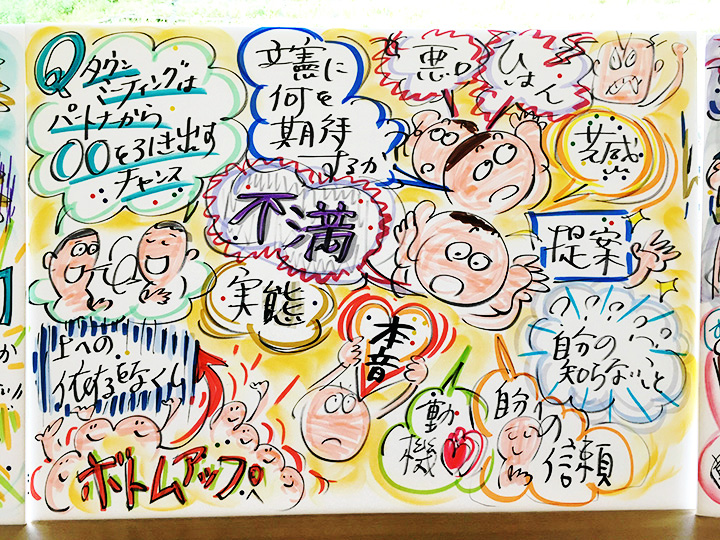 Q タウン
ミーティングは
パートナから
〇〇を引き出す
チャンス
立憲に
何を
期待
するか
悪口
ひはん
共感
不満
提案
実態
本音
自分の
知らないこと
上への
依存をなくし
ボトムアップへ
動
機
自分への
信頼